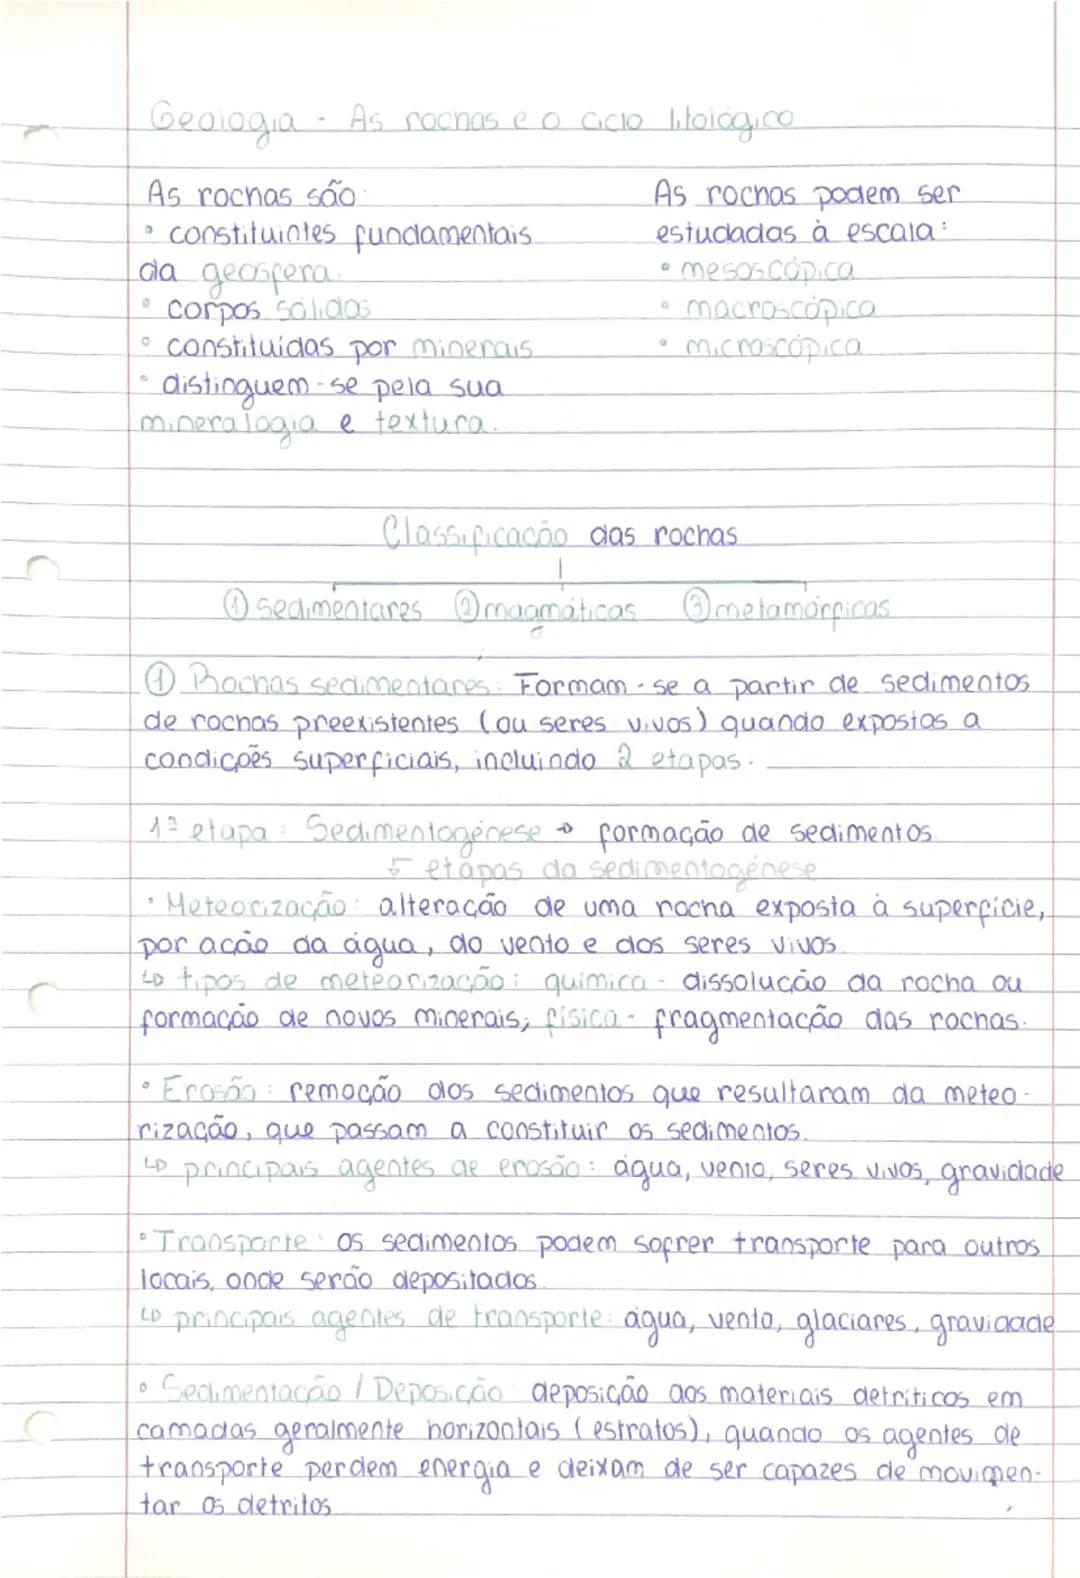 Geologia - As rochas e o ciclo litológico
As rochas são:
• constituintes fundamentais
da geosfera.
• corpos sólidos
• constituídas por minerais
• distinguem-se pela sua
mineralogia e textura.
As rochas podem ser
estudadas à escala:
• mesoscópica
• macroscópica
• microscópica
Classificação das rochas
① sedimentares ② magmáticas ③ metamórficas
① Rochas sedimentares: Formam-se a partir de sedimentos
de rochas preexistentes (ou seres vivos) quando expostas a
condições superficiais, incluindo 2 etapas.
1ª etapa: Sedimentogénese → formação de sedimentos
↳ etapas da sedimentogénese
• Meteorização: alteração de uma rocha exposta à superfície,
por ação da água, do vento e dos seres vivos.
↳ tipos de meteorização: química - dissolução da rocha ou
formação de novos minerais; física - fragmentação das rochas.
• Erosão: remoção dos sedimentos que resultaram da meteo-
rização, que passam a constituir os sedimentos.
↳ principais agentes de erosão: água, vento, seres vivos, gravidade
• Transporte: os sedimentos podem sofrer transporte para outros
locais, onde serão depositados.
↳ principais agentes de transporte: água, vento, glaciares, gravidade
• Sedimentação / Deposição: deposição dos materiais detríticos em
camadas geralmente horizontais (estratos), quando os agentes de
transporte perdem energia e deixam de ser capazes de movimen-
tar os detritos.